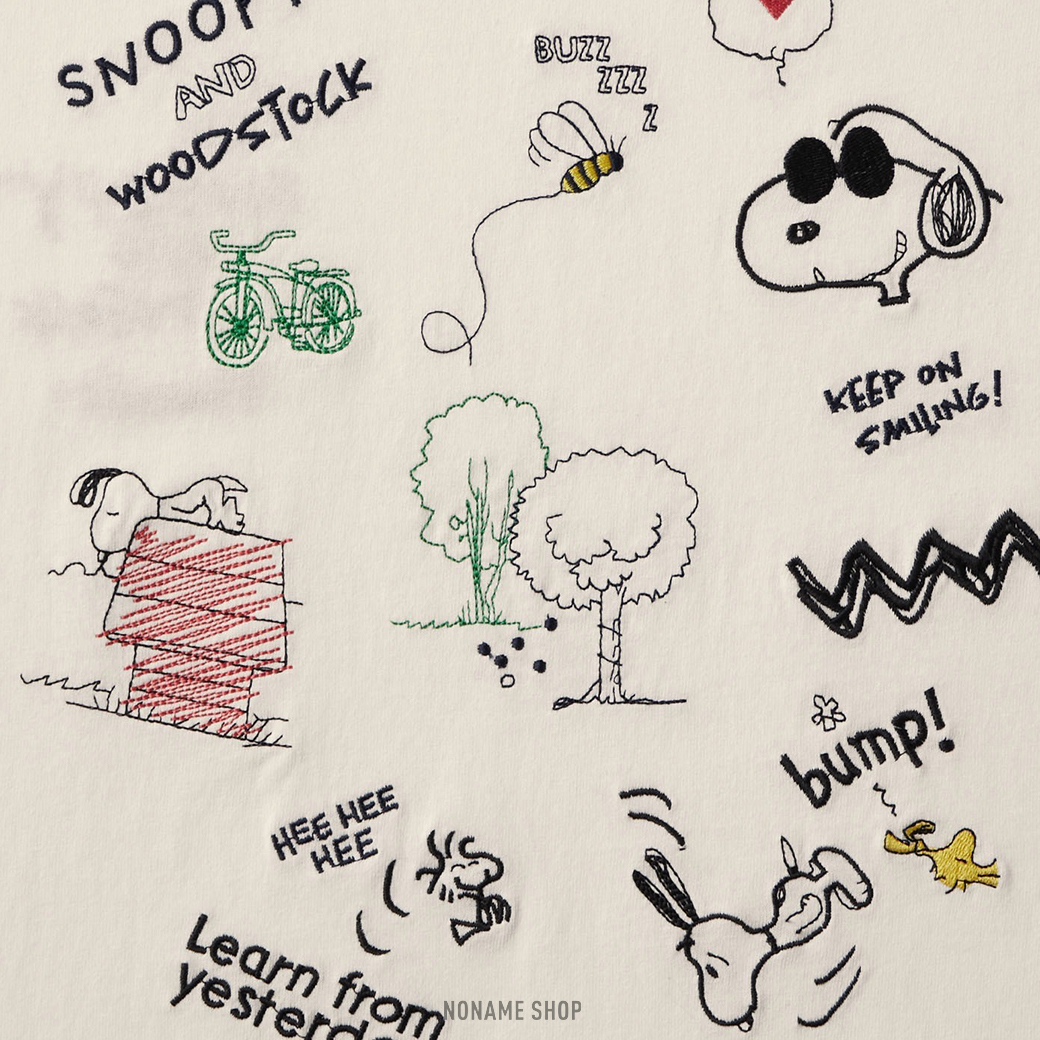 SNOOPY
AND
WOODSTOCK
BUZZ
ZZZ
Z
KEEP ON
SMILING!
bump!
HEE HEE
HEE
Learn from
NONAME SHOP